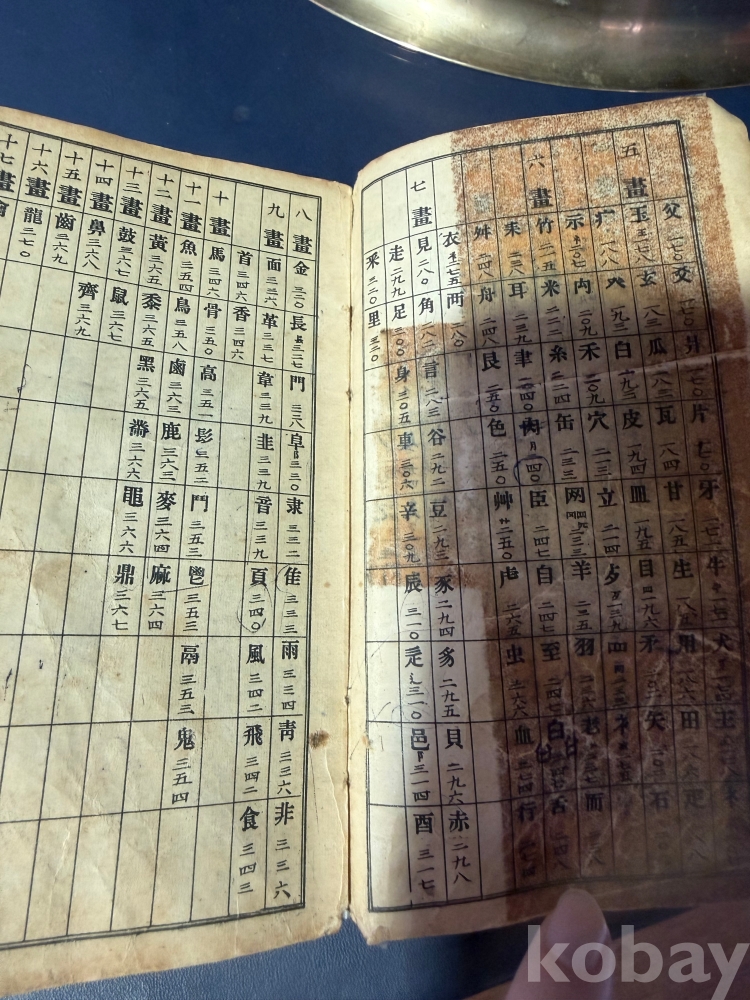 父 爻 爿 片 牙 牛 犬
五畫 玉 玄 瓜 瓦 甘 一八五 生 一八五 用 一八六 田 疋
疒 一八八 癶 一九二 白 一九二 皮 一九四 皿 一九五 目 一九六 矛 矢 石
示 禸 二〇九 禾 二〇九 穴 二一三 立 二一四
六畫 竹 二一五 米 二二二 糸 二二四 缶 二三三 网 二三三 羊 二三五 羽 二三六 老 而
耒 二三八 耳 二三九 聿 二四〇 肉 二四〇 臣 二四七 自 二四七 至 二四七 臼 舌 二四八
舛 二四八 舟 二四八 艮 二五〇 色 二五〇 艸 艹 二五〇 虍 二六五 虫 二六六 血 二七四 行 二七四
衣 衤 二七五 襾 二八〇
七畫 見 二八〇 角 二八二 言 二八三 谷 二九二 豆 二九三 豕 二九四 豸 二九五 貝 二九六 赤 二九八
走 二九九 足 三〇〇 身 三〇五 車 三〇六 辛 三〇九 辰 三一〇 辵 辶 三一〇 邑 阝 三一四 酉 三一七
釆 三二〇 里 三二〇
八畫 金 三二〇 長 镸 三二七 門 三二八 阜 阝 三三〇 隶 三三二 隹 三三三 雨 三三四 靑 三三六 非 三三六
九畫 面 三三六 革 三三七 韋 三三九 韭 三三九 音 三三九 頁 三四〇 風 三四二 飛 三四二 食 三四三
首 三四六 香 三四六
十畫 馬 三四六 骨 三五〇 高 三五一 髟 三五二 鬥 三五三 鬯 三五三 鬲 三五三 鬼 三五四
十一畫 魚 三五四 鳥 三五八 鹵 三六三 鹿 三六三 麥 三六四 麻 三六四
十二畫 黃 三六五 黍 三六五 黑 三六五 黹 三六六 黽 三六六 鼎 三六七
十三畫 鼓 三六七 鼠 三六七
十四畫 鼻 三六八 齊 三六九
十五畫 齒 三六九
十六畫 龍 三七〇
十七畫
kobay